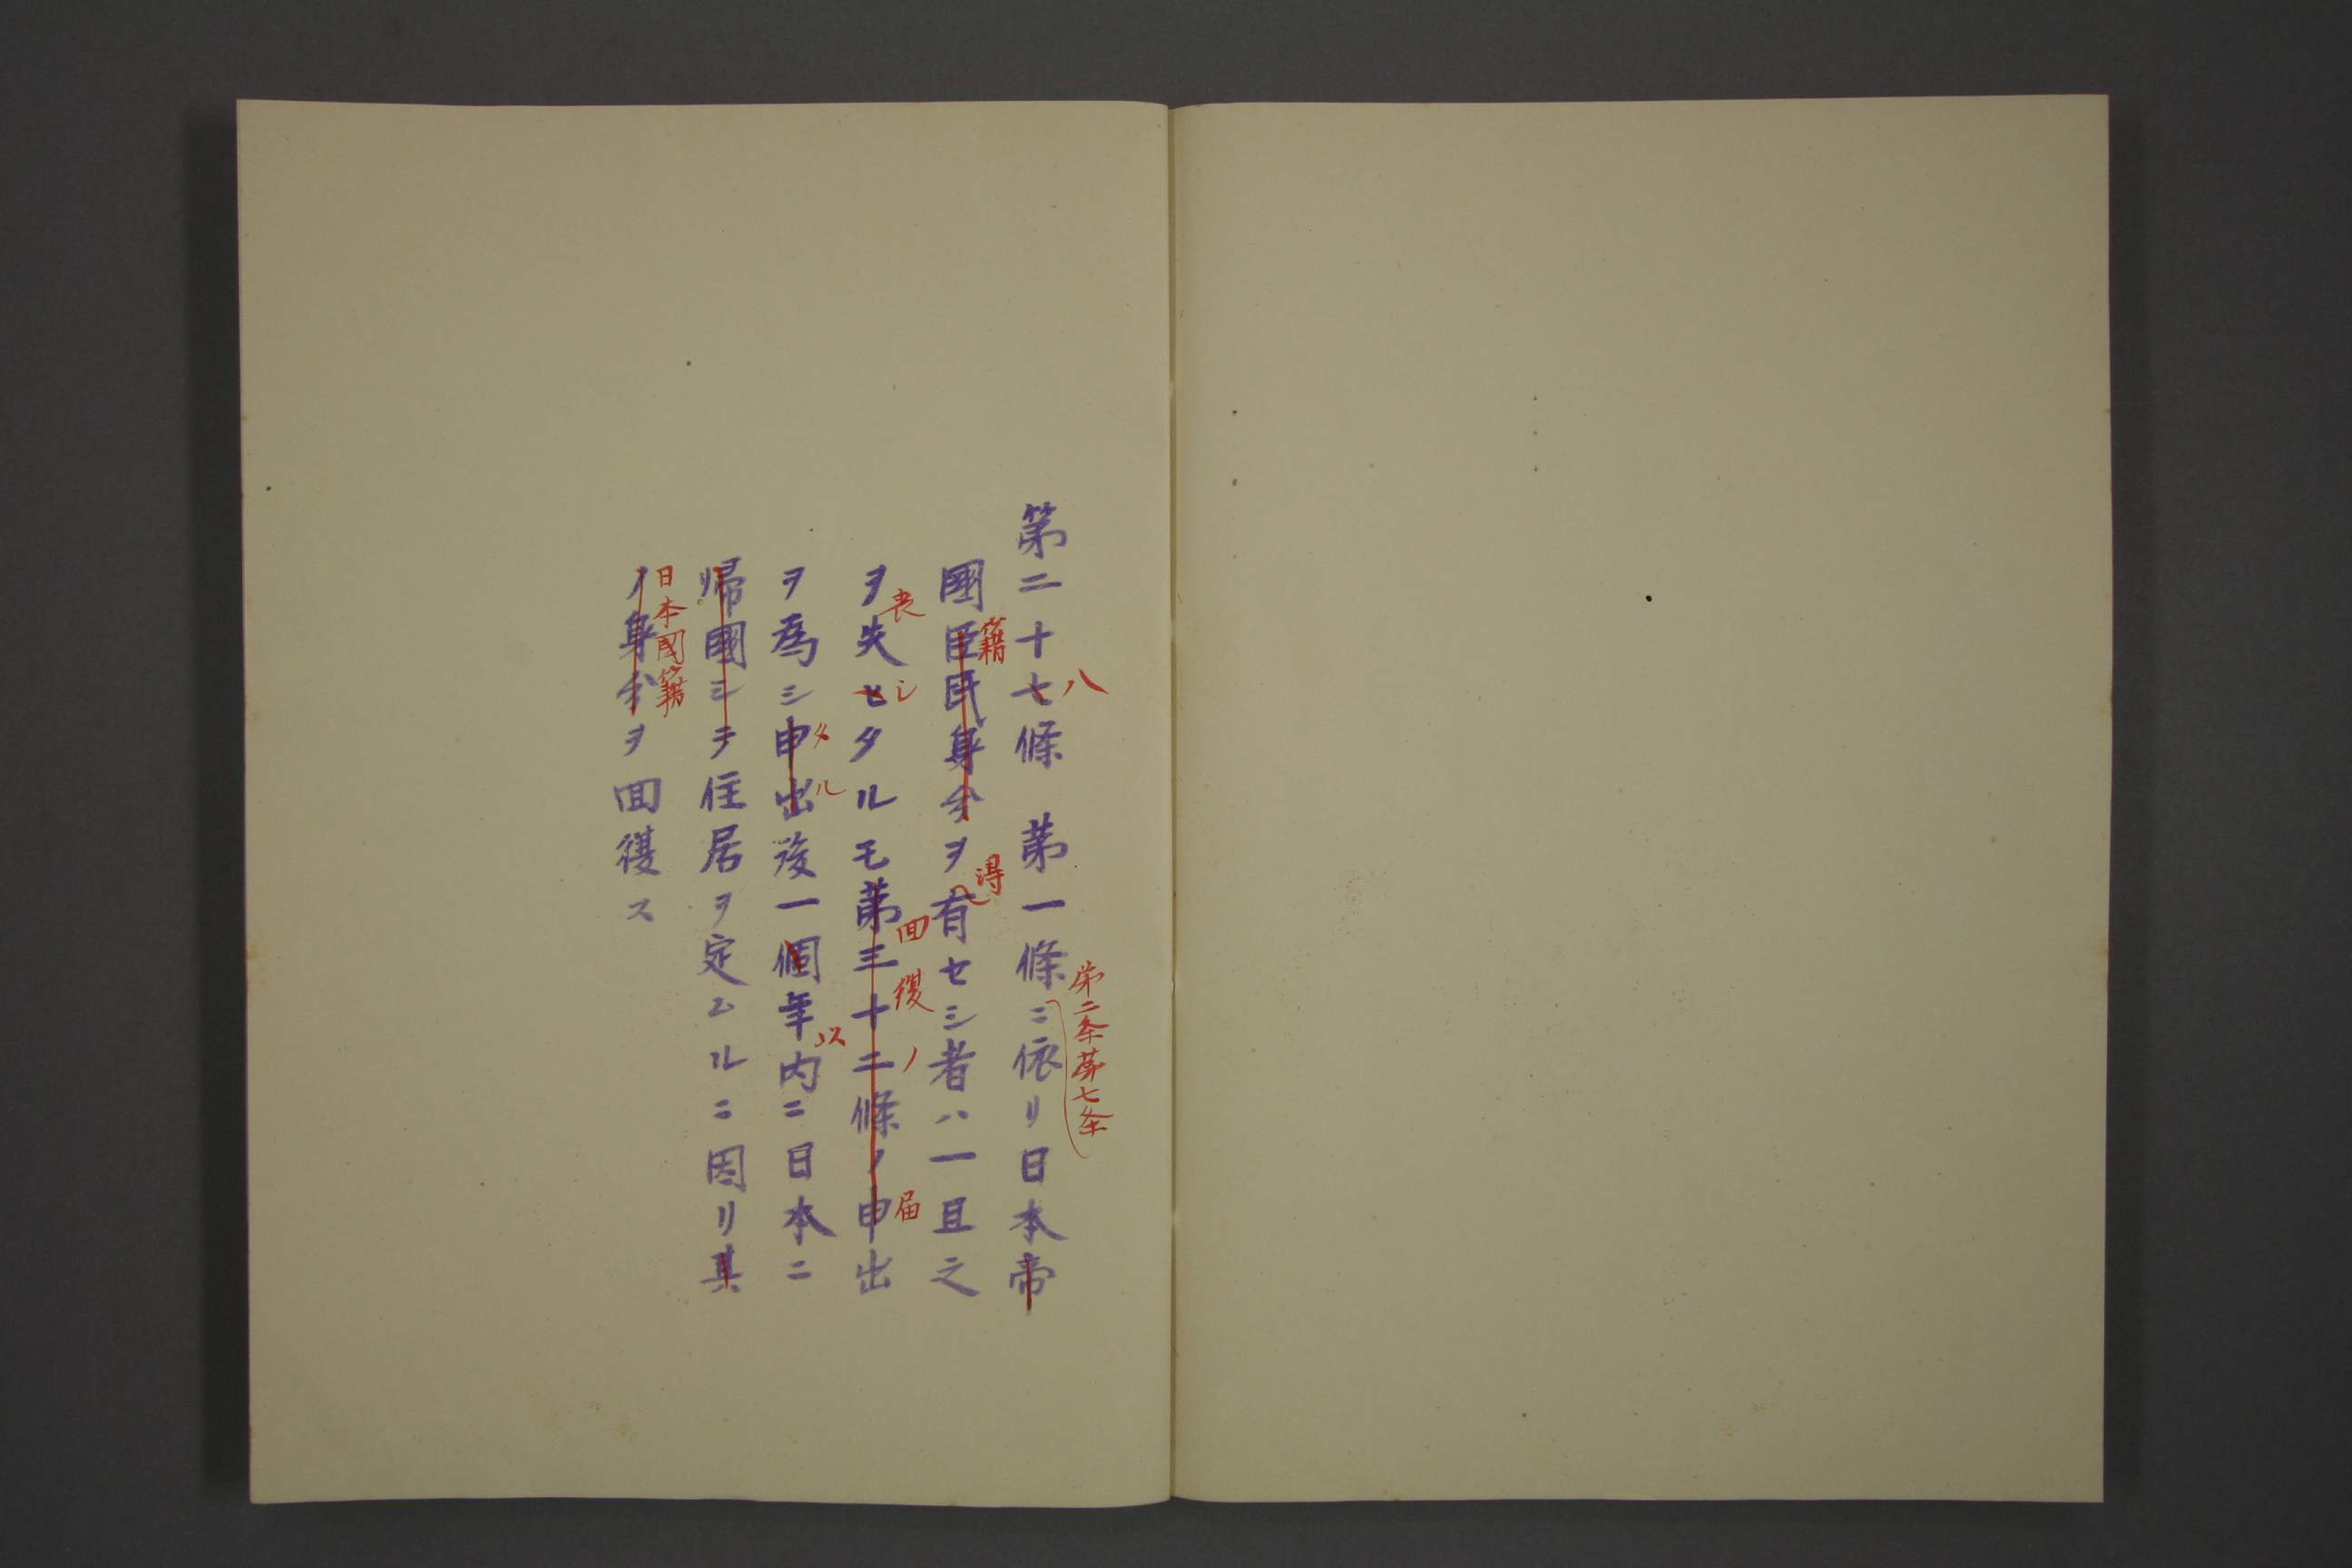 八
第二条第七条
第二十七條　第一條ニ依リ日本帝
籍
得
國臣民身分ヲ有セシ者ハ一且之
喪
シ
回復ノ
届
ヲ失セタルモ第三十二條ノ申出
タル
以
ヲ為シ申出後一個年内ニ日本ニ
帰國シテ住居ヲ定ムルニ因リ其
日本國籍
ノ身分ヲ回復ス